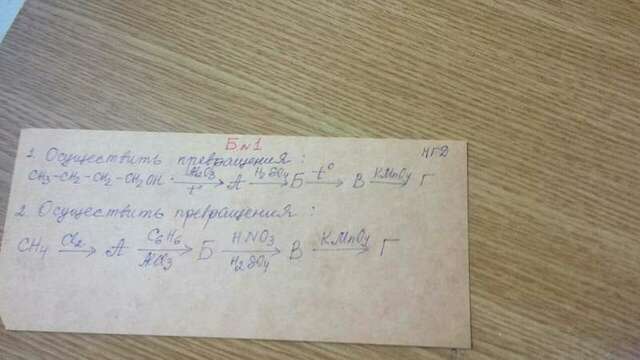 Б№1
НГД
1. Осуществить превращения:
CH3-CH2-CH2-CH2OH Al2O3 t° → А H2SO4 → Б t° → В KMnO4 → Г
2. Осуществить превращения:
CH4 Cl2 → А C6H6 AlCl3 → Б HNO3 H2SO4 → В KMnO4 → Г